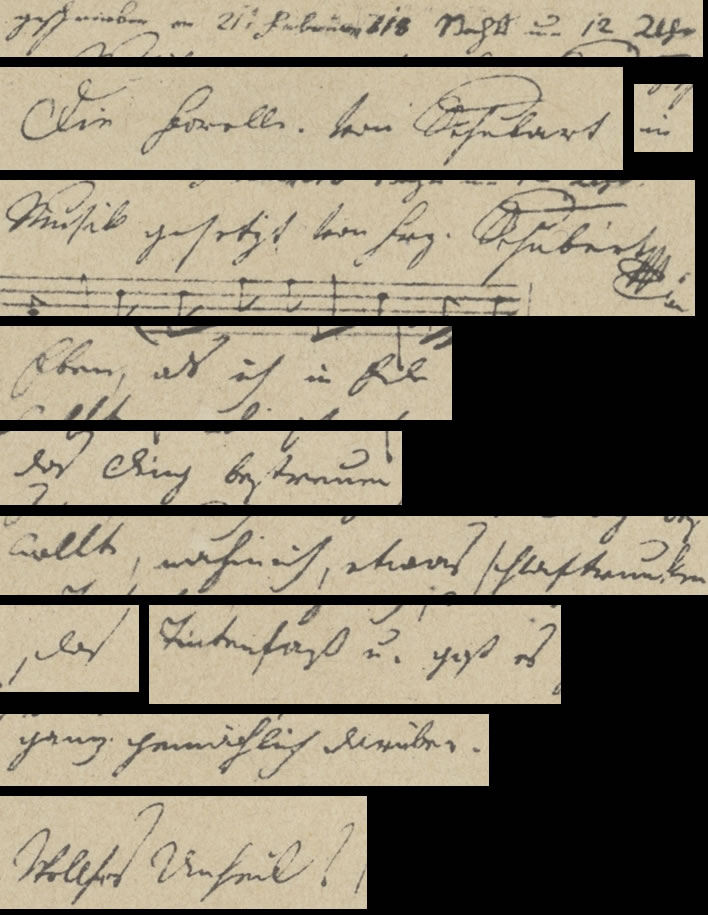 geschrieben am 21t Februar 818 Nachts um 12 Uhr
Die Forelle. von Schubart in
Musik gesetzt von Frz. Schubert
Eben, als ich in Eile
das Ding bestreuen
wollte, nahm ich, etwas schlaftrunken
, das Tintenfaß u. goß es
ganz gemächlich darüber.
Welches Unheil!